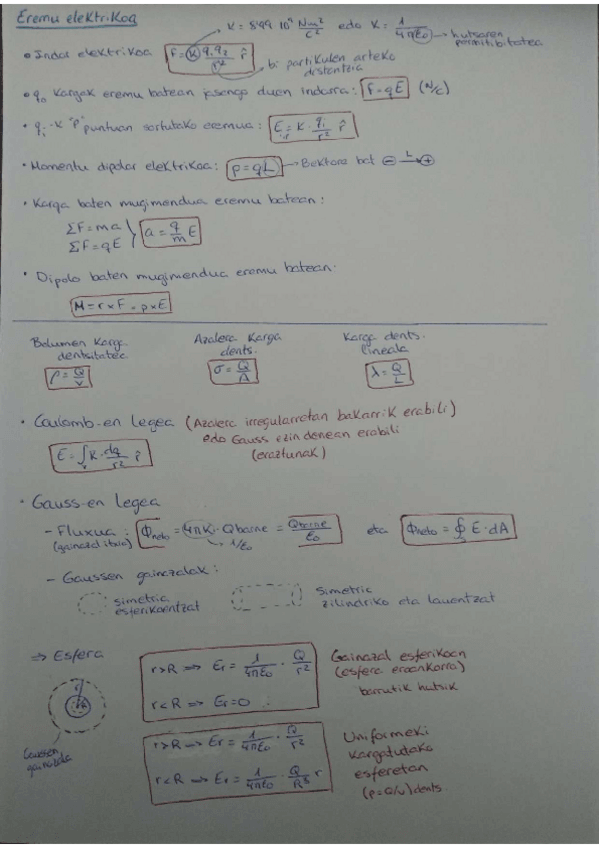 Eremu elektrikoa
K = 8'99 10⁹ Nm²/C² edo K = 1/4πε₀ → hutsaren permitibitatea
• Indar elektrikoa F = K q₁q₂/r² r̂
bi partikulen arteko distantzia
• q₀ kargak eremu batean jasango duen indarra: F = qE (N/C)
• qᵢ-k "p" puntuan sortutako eremua: Eᵢ = K · qᵢ/r² r̂
• Momentu dipolar elektrikoa: p = qL → Bektorea bat ⊖ L→ ⊕
• Karga baten mugimendua eremu batean:
ΣF = ma
ΣF = qE } a = q/m E
• Dipolo baten mugimendua eremu batean:
M = r × F = p × E
Bolumen karga dentsitatea
ρ = Q/V
Azalera karga dents.
σ = Q/A
Karga dents. lineala
λ = Q/L
• Coulomb-en legea (Azalera irregularretan bakarrik erabili)
edo Gauss ezin denean erabili
(eraztunak)
E = ∫ K · dq/r² r̂
• Gauss-en legea
- Fluxua: Φneto = 4πK · Qbarne = Qbarne/ε₀ eta Φneto = ∮ E · dA
(gainazal itxia)
1/ε₀
- Gaussen gainazalak:
simetric esferikoentzat
simetric zilindriko eta lauentzat
⇒ Esfera
r
R
Gaussen gainazala
r > R ⇒ Er = 1/4πε₀ · Q/r²
r < R ⇒ Er = 0
Gainazal esferikoan
(esfera eroankorra)
barrutik hutsik
r > R ⇒ Er = 1/4πε₀ · Q/r²
r < R ⇒ Er = 1/4πε₀ · Q/R³ r
Uniformeki
kargatutako
esferetan
(ρ = Q/V) dents.